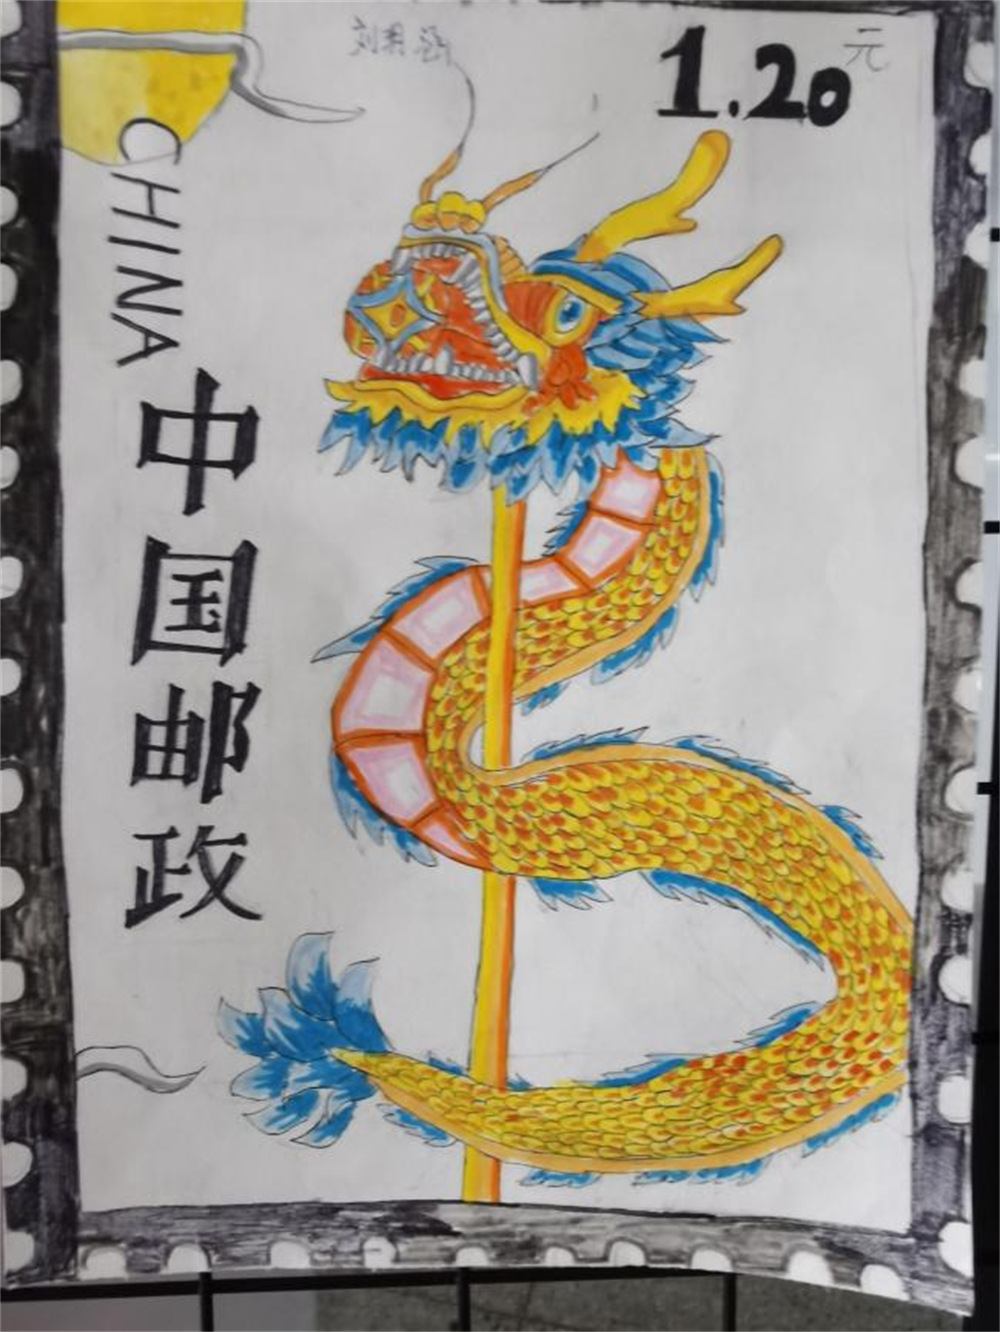 1.20元
CHINA
中国邮政